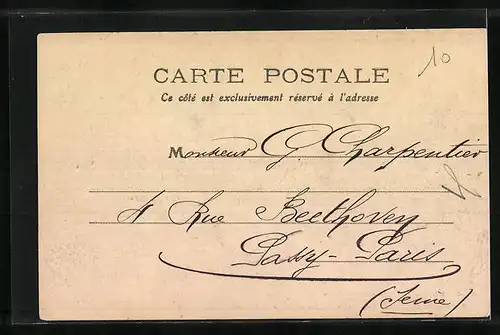 10
CARTE POSTALE
Ce côté est exclusivement réservé à l'adresse
Monsieur G. Charpentier
4 Rue Beethoven
Passy-Paris
(Seine)